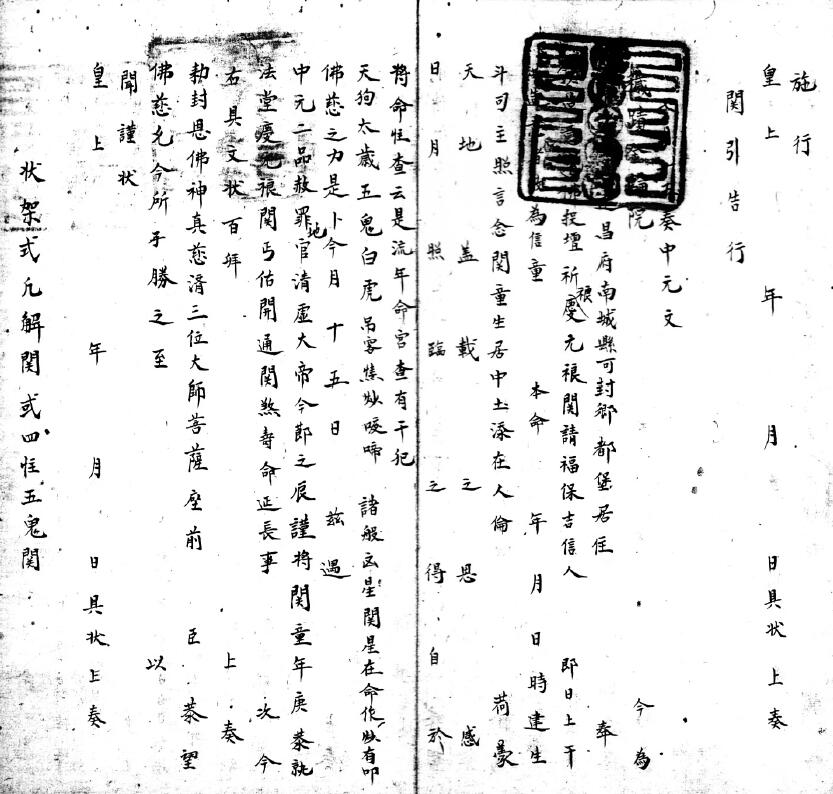 施行
皇上 年 月 日具状上奏
関引告行
奏中元文
院 今為
昌府南城縣可封鄉 都堡居住 奉
佛投壇祈慶元禳関請福保吉信人 即日上干
為信童 本命 年 月 日 時建生
斗司主照言念関童生居中土添在人倫 荷蒙
天地盖載之恩感
日月照臨之得自於
將命性查云是流年命宮查有干犯
天狗太歲五鬼白虎吊客 咬啼 諸般 星関星在命作 有叩
佛慈之力是卜今月十五日 兹遇
中元二品赦罪地官清虛大帝今節之辰謹將関童年庚恭就
法堂慶元禳関丐佑開通関煞壽命延長事 次今
右具文状百拜 上奏
勅封恩佛神真慈濟三位大師菩薩座前 臣恭望
佛慈允今所于勝之至 以
聞謹状
皇上 年 月 日具状上奏
状架式凡解関或四性五鬼関